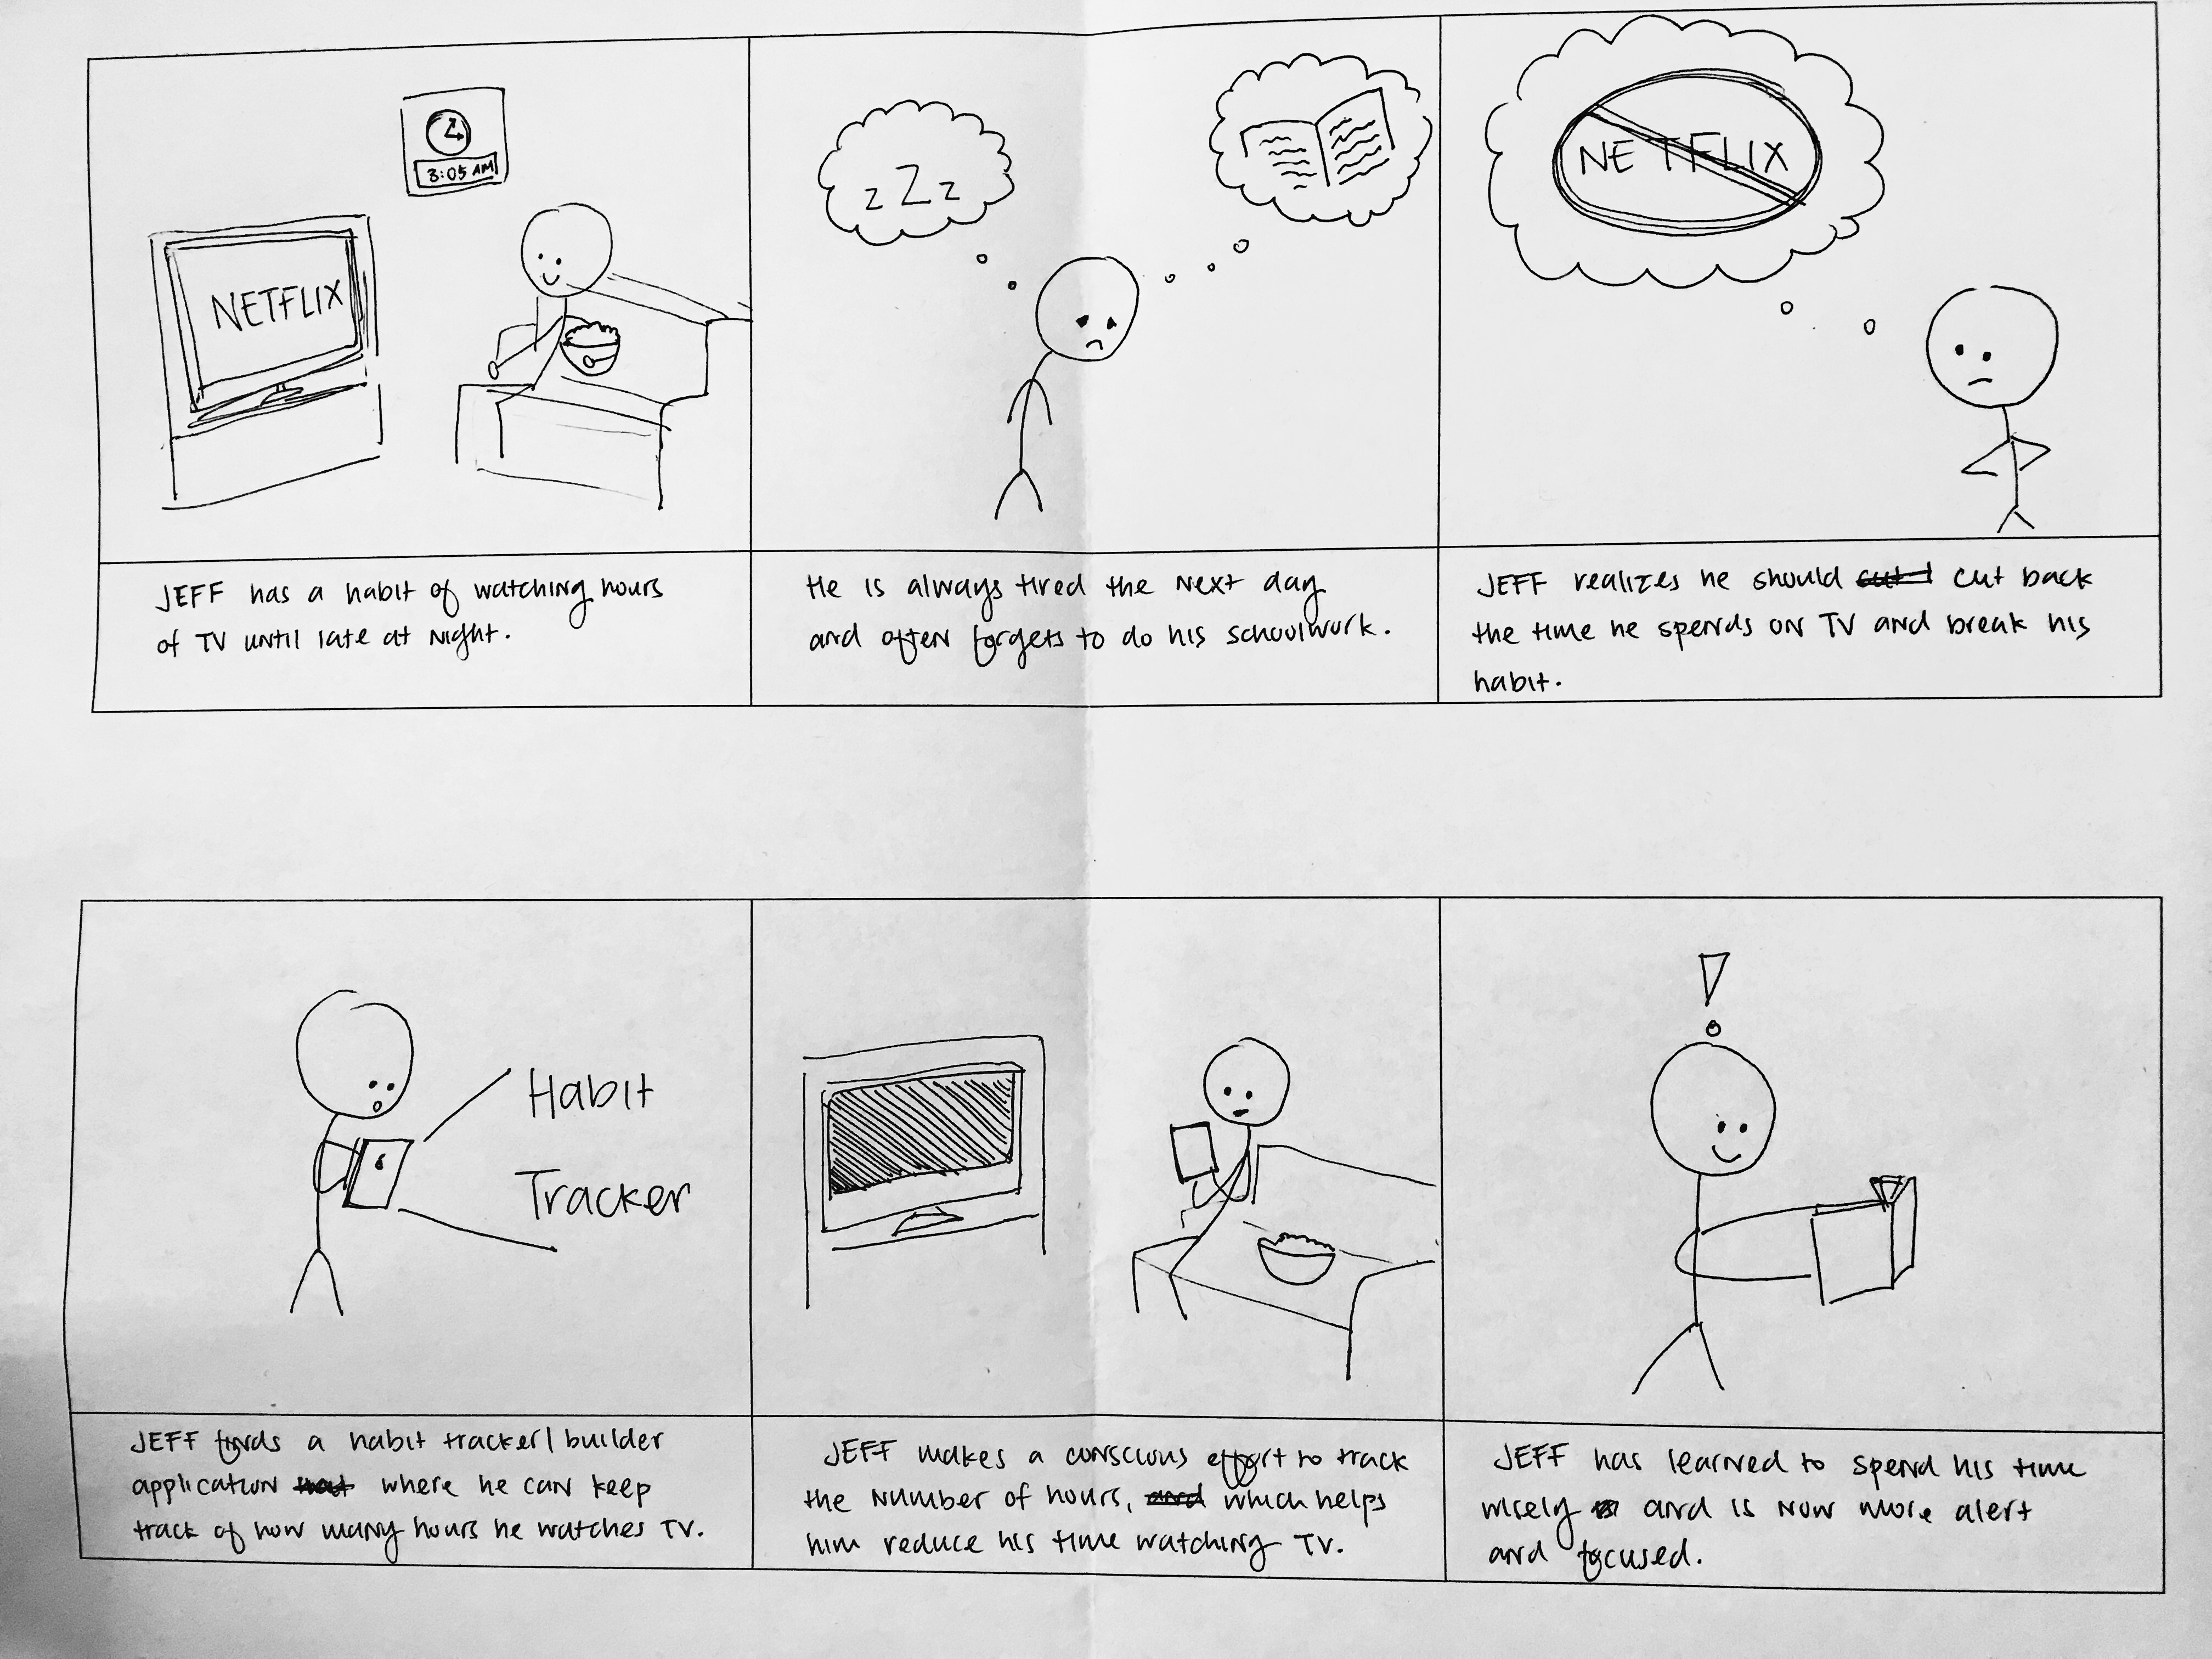 3:05 AM
NETFLIX
JEFF has a habit of watching hours
of TV until late at night.
z Z z
He is always tired the next day
and often forgets to do his schoolwork.
NETFLIX
JEFF realizes he should cut back
the time he spends on TV and break his
habit.
Habit
Tracker
JEFF finds a habit tracker/builder
application where he can keep
track of how many hours he watches TV.
JEFF makes a conscious effort to track
the number of hours, and which helps
him reduce his time watching TV.
!
JEFF has learned to spend his time
wisely and is now more alert
and focused.